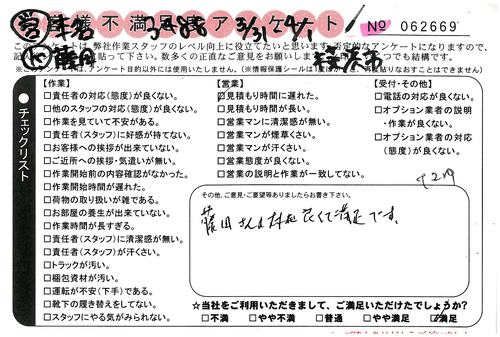 お客様不満足度アンケート
3488 3/31 〜 4/1
№ 062669
このアンケートは、弊社作業スタッフのレベル向上に役立てたいと思います。否定的なアンケートになりますので、
チェックリスト
【作業】
□責任者の対応(態度)が良くない。
□他のスタッフの対応(態度)が良くない。
□作業を見ていて不安がある。
□責任者(スタッフ)に好感が持てない。
□お客様への挨拶が出来ていない。
□ご近所への挨拶・気遣いが無い。
□作業開始前の内容確認がなかった。
□作業開始時間が遅れた。
□荷物の取り扱いが雑である。
□お部屋の養生が出来ていない。
□作業時間が長すぎる。
□責任者(スタッフ)に清潔感が無い。
□責任者(スタッフ)が汗くさい。
□トラックが汚い。
□梱包資材が汚い。
□運転が不安(下手)である。
□靴下の履き替えをしてない。
□スタッフにやる気がみられない。
【営業】
☑見積もり時間に遅れた。
□見積もり時間が長い。
□営業マンに清潔感が無い。
□営業マンが煙草くさい。
□営業マンが汗くさい。
□営業態度が良くない。
□営業の説明と作業が一致してない。
【受付・その他】
□電話の対応が良くない。
□オプション業者の説明
・作業が良くない。
□オプション業者の対応
(態度)が良くない。
その他、ご意見・ご要望等ありましたらお書き下さい。
藤田さんは対応良くて満足です。
☆当社をご利用いただきまして、ご満足いただけたでしょうか?
□不満 □やや不満 □普通 □やや満足 ☑満足